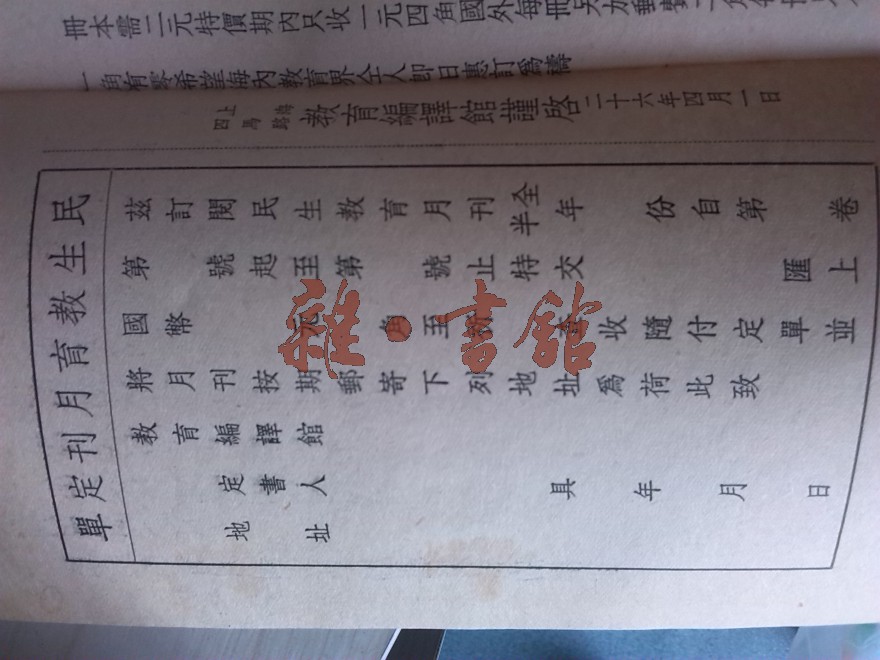 冊本需二元特價期內只收一元四角國外每冊另加郵費二角
一角有零希望海內教育界仝人即日惠訂為禱
上海四馬路 教育編譯館謹啓 二十六年四月一日
民生教育月刊定單
茲訂閱民生教育月刊全半年 份自第 卷
第 號起至第 號止特交 匯上
國幣 角至 收隨付定單並
將月刊按期郵寄下列地址為荷此致
教育編譯館
定書人 具 年 月 日
地址